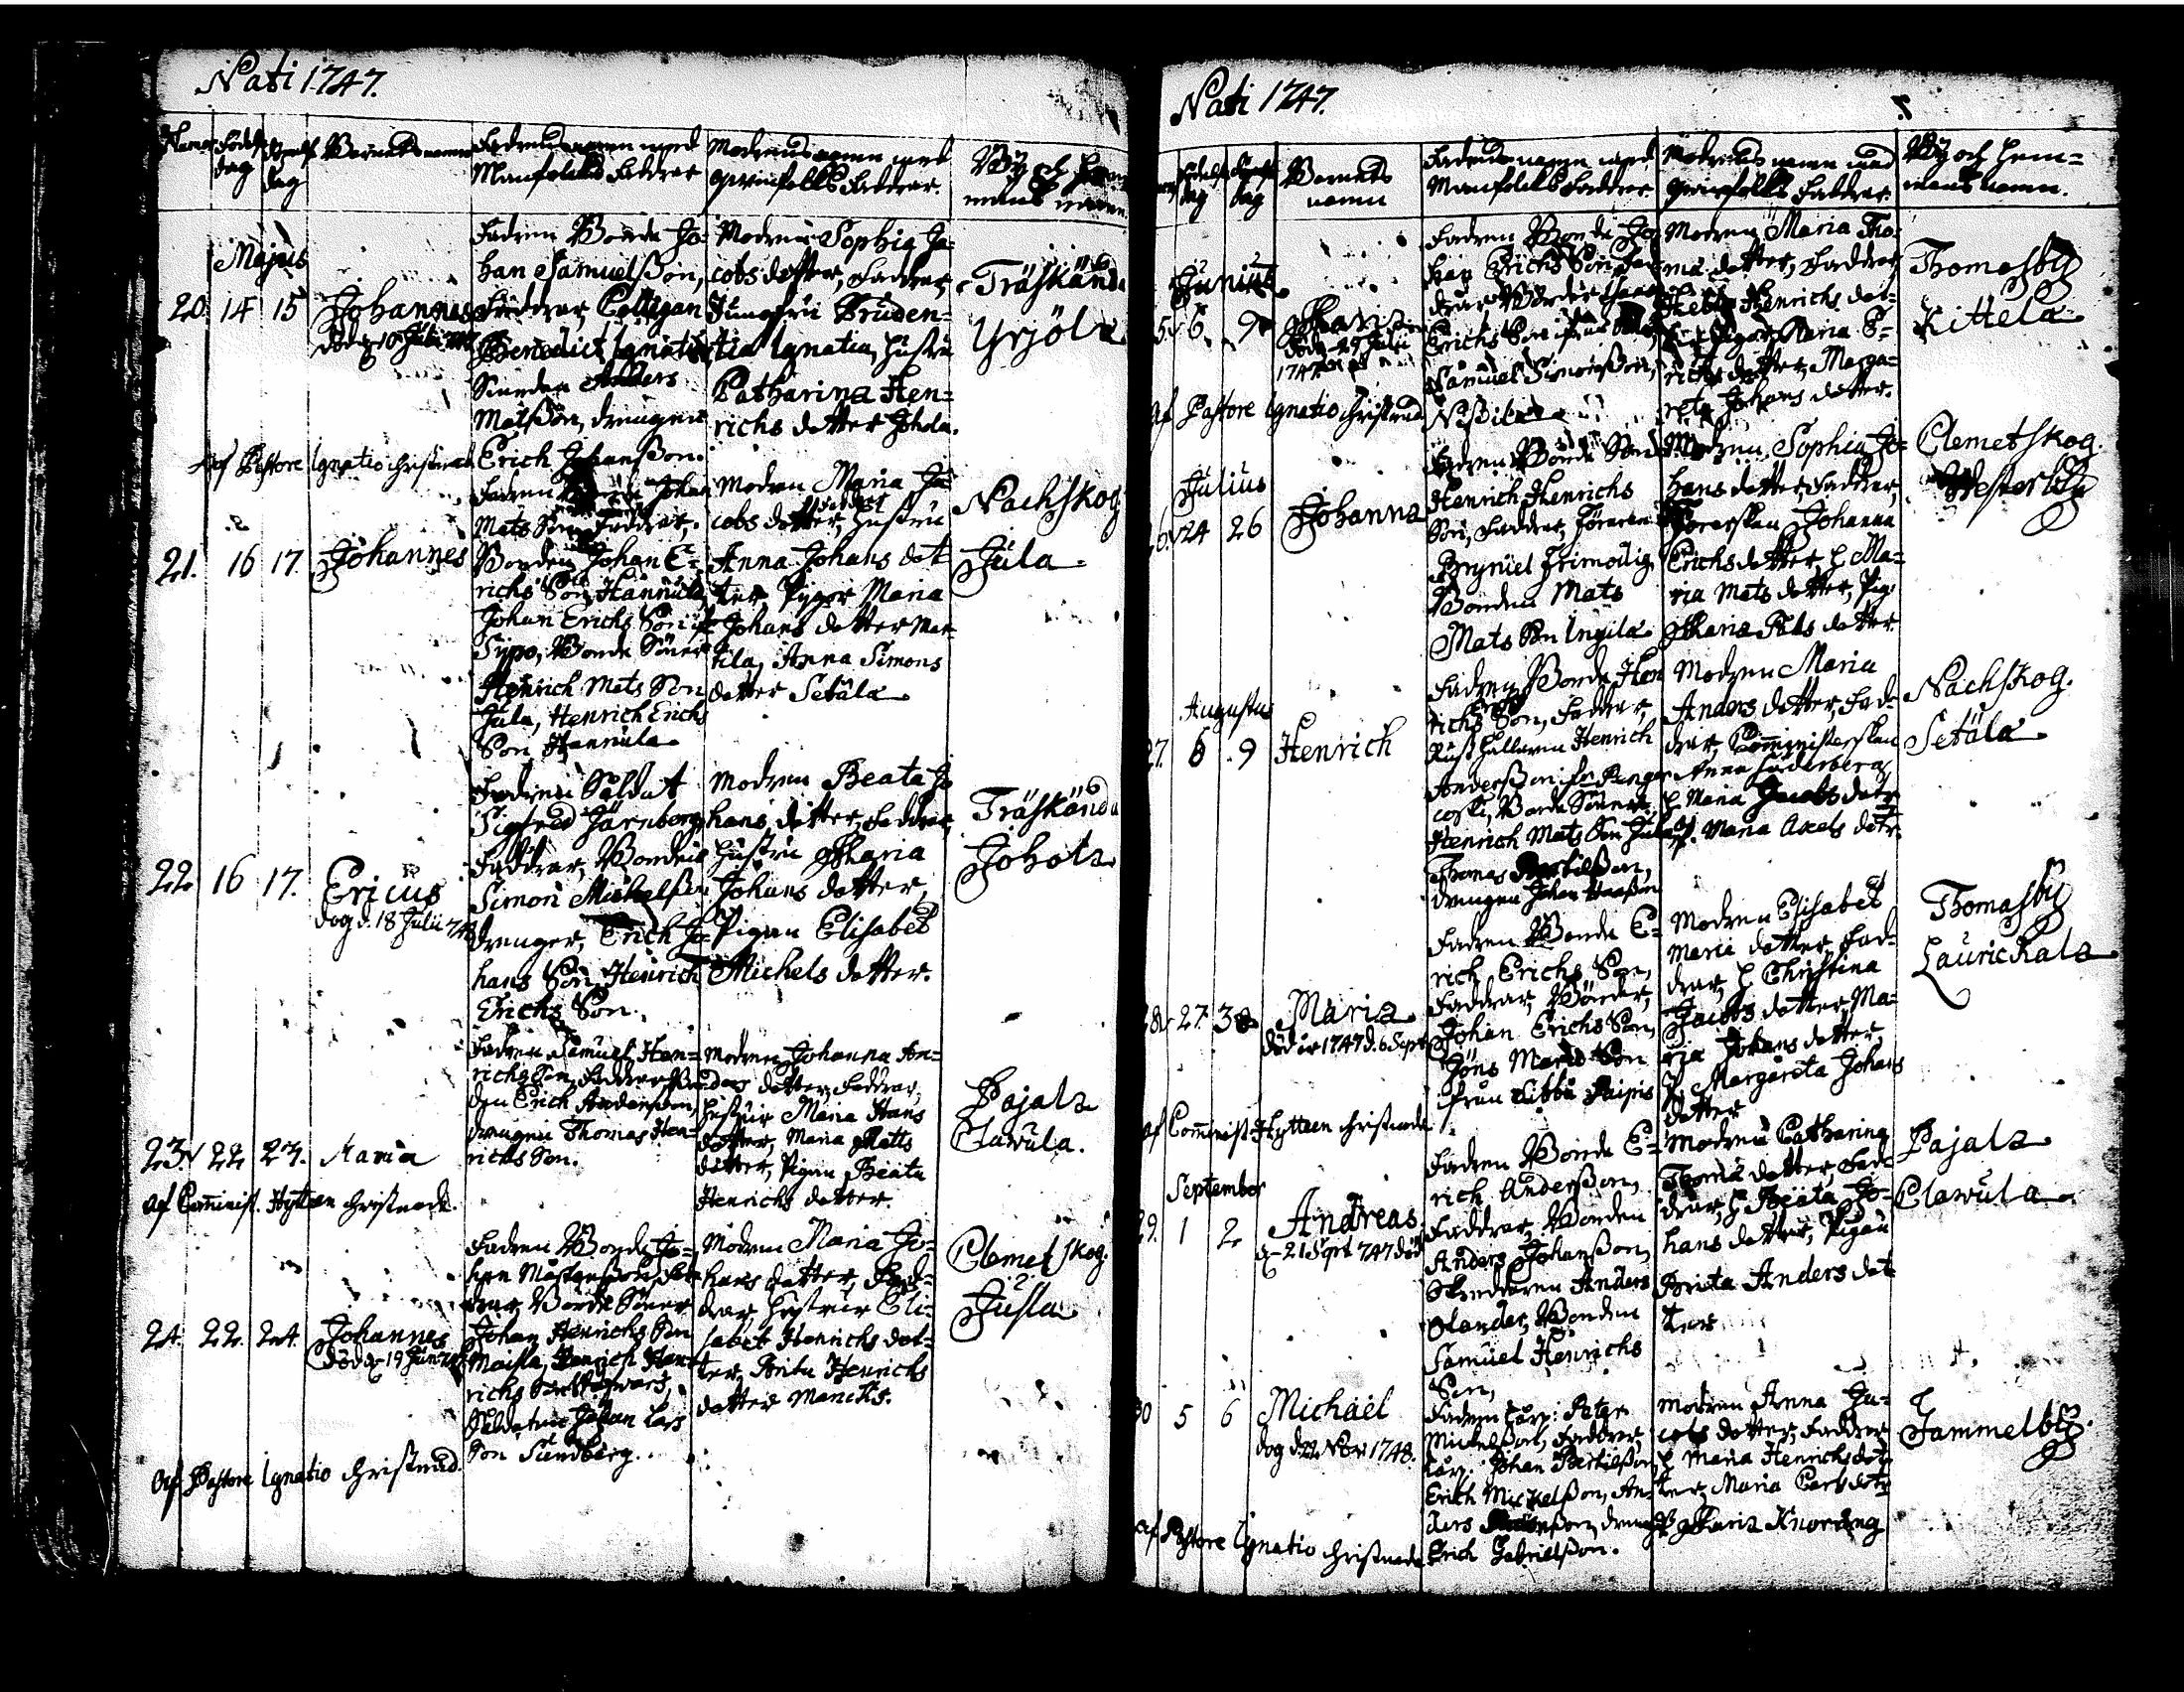 Nati 1747.
Födelse dag
dag
Barnets namn
Fadrens namn med
Manfolcks Faddrar
Modrens namn med
qwinfolks Faddrar.
By och hem¬
mans namn.
Majus
20. 14 15 Johannes
död d. 10 Julii
Fadren Bonde Jo¬
han Samuelsson,
Faddrar, Collegan
Benedict Ignatius,
Anders
Matsson, drengen
Erich Johansson.
Modren Sophia Ja¬
cobs dotter, Faddrar,
Jungfru Pruden¬
tia Ignatia, hustru
Catharina Hen¬
richs dotter Johola.
Träskända
Yrjölä
Af Pastore Ignatio christnad
21. 16 17. Johannes
Fadren Johan
Mats Son, Faddrar,
Bonden Johan E¬
richs Son Hannula,
Johan Erichs Son
Sypo, Bonde Söner
Henrich Mats Son
Jula, Henrich Erichs
Son Hannula.
Modren Maria Ja¬
cobs dotter, Faddrar hustru
Anna Johans dot
ter Pigor Maria
Johans dotter Mar¬
tila, Anna Simons
dotter Setälä
Nachskog
Jula
22. 16 17. Ericus
dog d. 18 Julii 748
Fadren Soldat
Sigfred Järnberg
Faddrar, Bonden
Simon Michelsson
drenger, Erich Jo¬
hans Son, Henrich
Erichs Son.
Modren Beata Jo
hans dotter, Faddrar,
hustru Maria
Johans dotter,
Pigan Elisabet
Michels dotter.
Träskända
Johola
23. 22 23. Maria
Fadren Samuel Hen¬
richs Son, Faddrar Bon
den Erich Andersson,
drengen Thomas Hen¬
richs Son.
Modren Johanna An¬
ders dotter, Faddrar,
hustrur Maria Hans
dotter, Maria Matts
dotter, Pigan Beata
Henrichs dotter.
Pajala
Clawula.
Af Comminist. Hyttæn christnade.
24. 22. 24. Johannes
död d. 19 Jun.
Fadren Bonde Jo¬
han Mårtensson, Fad¬
drar, Bonde Söner
Johan Henrichs Son
Maisla, Henrich Hen¬
richs Son
Soldaten Johan Lars
Son Sundberg.
Modren Maria Jo¬
hans dotter, Fad¬
drar, hustrur Eli¬
sabet Henrichs dot¬
ter, Brita Henrichs
dotter Manckis.
Clemetskog.
Jusla
Af Pastore Ignatio christnad.
Nati 1747.
7
Födelse dag
dag
Barnets
namn
Fadrens namn med
Manfolcks Faddrar
Modrens namn med
qwinfolks Faddrar
By och hem¬
mans namn.
Junius
5. 6. 9 Maria
död d. 29 Julii
1747
Fadren Bonde Jo
han Erichs Son, Fad
drar Bönder
Erichs Son
Samuel Simonsson,
Nissilä
Modren Maria Tho¬
mæ dotter, Faddrar,
Henrichs dot¬
Pigor Maria E¬
richs dotter, Marga¬
reta Johans dotter.
Thomasby
Kittelä
Af Pastore Ignatio christnad
Julius
6. 24 26 Johanna
Fadren Bonde Son
Henrich Henrichs
Son, Faddrar, Föraren
Brynuel Frimodig
Bonden Mats
Mats Son Ingila
Modren Sophia Jo¬
hans dotter, Faddrar,
Förerskan Johanna
Erichs dotter, h Ma¬
ria Mats dotter, Pig.
Maria Pals dotter
Clemetskog.
Westerby
Augustus
27. 8 9 Henrich
Fadren Bonde Hen
richs Erichs Son, Faddrar,
Rusthållaren Henrich
Andersson
Bonde Söner
Henrich Mats Son Jula
Thomas Bertilsson,
drengen Johan
Modren Maria
Anders dotter, Fad¬
drar, Comministerskan
Anna Söderberg
h Maria Jacobs dotr
p. Maria Axels dotr.
Nachskog.
Setälä
28. 27. 30 Maria
död är 1747 d. 6 Sept
Fadren Bonde E¬
rich Erichs Son,
Faddrar, Bönder,
Johan Erichs Son,
Jöns Son
frun Paipis
Modren Elisabet
dotter, Fad¬
drar, h Christina
Jacobs dotter, Ma¬
ria Johans dotter,
P. Margareta Johans
dotter
Thomasby
Laurickala
Af Comminist. Hyttæn christnade
September
29. 1 2 Andreas
d. 21 Sept 747 död
Fadren Bonde E¬
rich Andersson,
Faddrar, Bonden
Anders Johansson,
Skreddaren Anders
Olander, Bonden
Samuel Henrichs
Son,
Modren Catharina
Thomæ dotter, Fad¬
drar, h Beata Jo¬
hans dotter, Pigan
Brita Anders dot
ter
Pajala
Clawula.
30 5 6 Michaël
dog d. 22 Nov 1748.
Fadren Peter
Michelsson, Faddrar,
Johan Bertilsson,
Erich Michelsson, An¬
ders drengen
Erich Gabrielsson.
Modren Anna Ja¬
cobs dotter, Faddrar
h Maria Henrichs dot¬
ter, Maria Carls dotr
p Maria Knorring
Jammelby.
Af Pastore Ignatio christnade